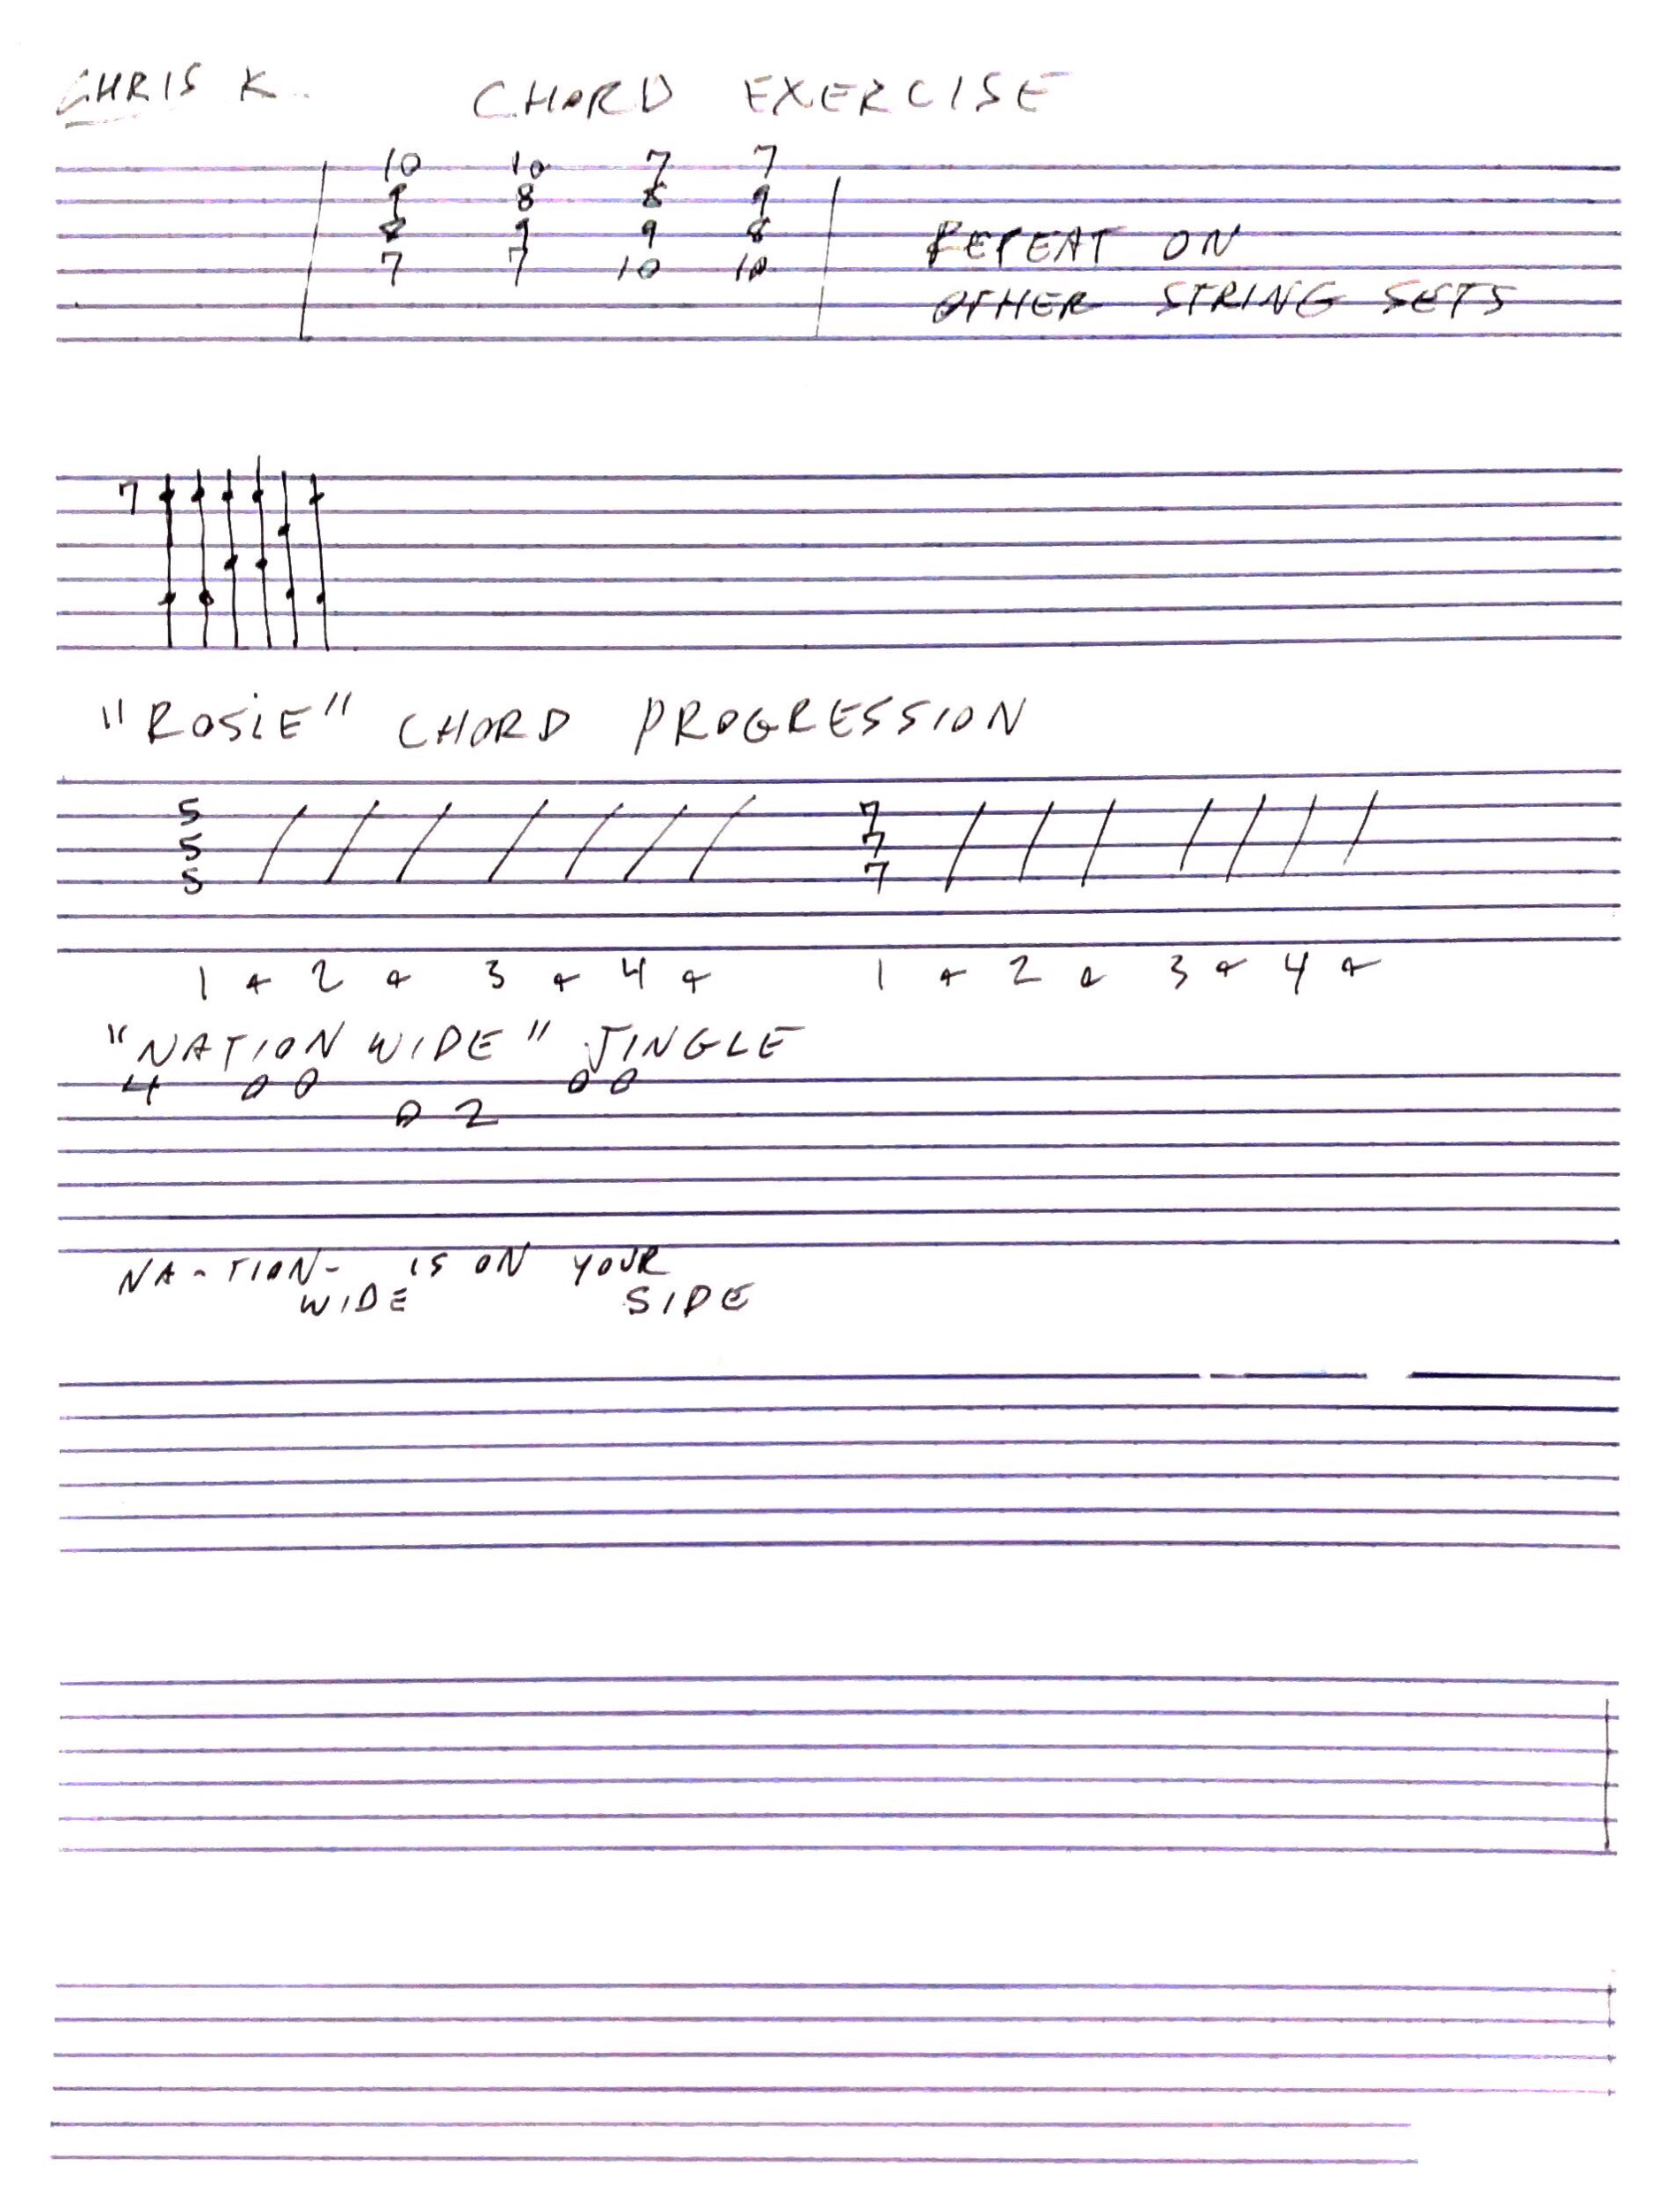 CHRIS K. CHORD EXERCISE
10 10 7 7
9 8 8 9
8 9 9 8
7 7 10 10
REPEAT ON
OTHER STRING SETS
7
"ROSIE" CHORD PROGRESSION
5 7
5 7
5 7
1 + 2 + 3 + 4 + 1 + 2 + 3 + 4 +
"NATION WIDE" JINGLE
4 0 0 0 0
0 2
NA-TION- IS ON YOUR
WIDE SIDE